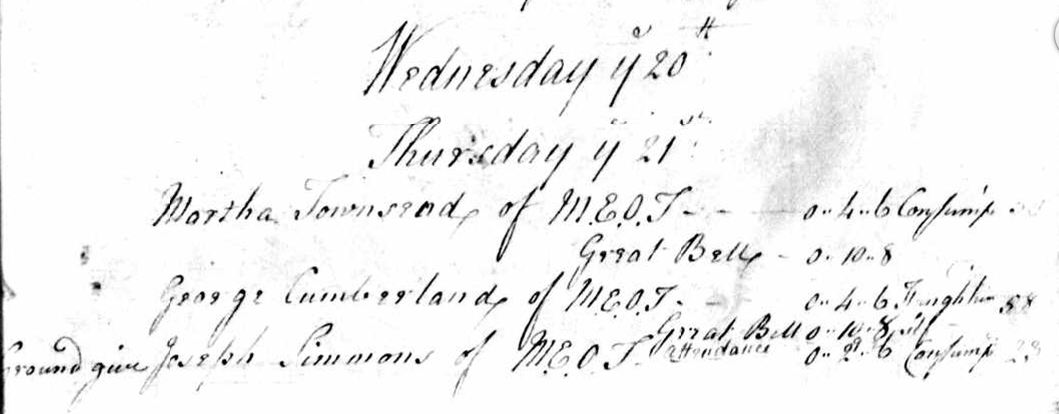 Wednesday yͤ 20th
Thursday yͤ 21st
Martha Townsend of M.E.O.T - - 0 " 4 " 6 Consump
Great Bell - 0 " 10 " 8
George Cumberland of M.E.O.T. - 0 " 4 " 6 58
Great Bell 0 " 10 " 8
Ground give Joseph Simmons of M.E.O.T attendance 0 " 2 " 6 Consump 23